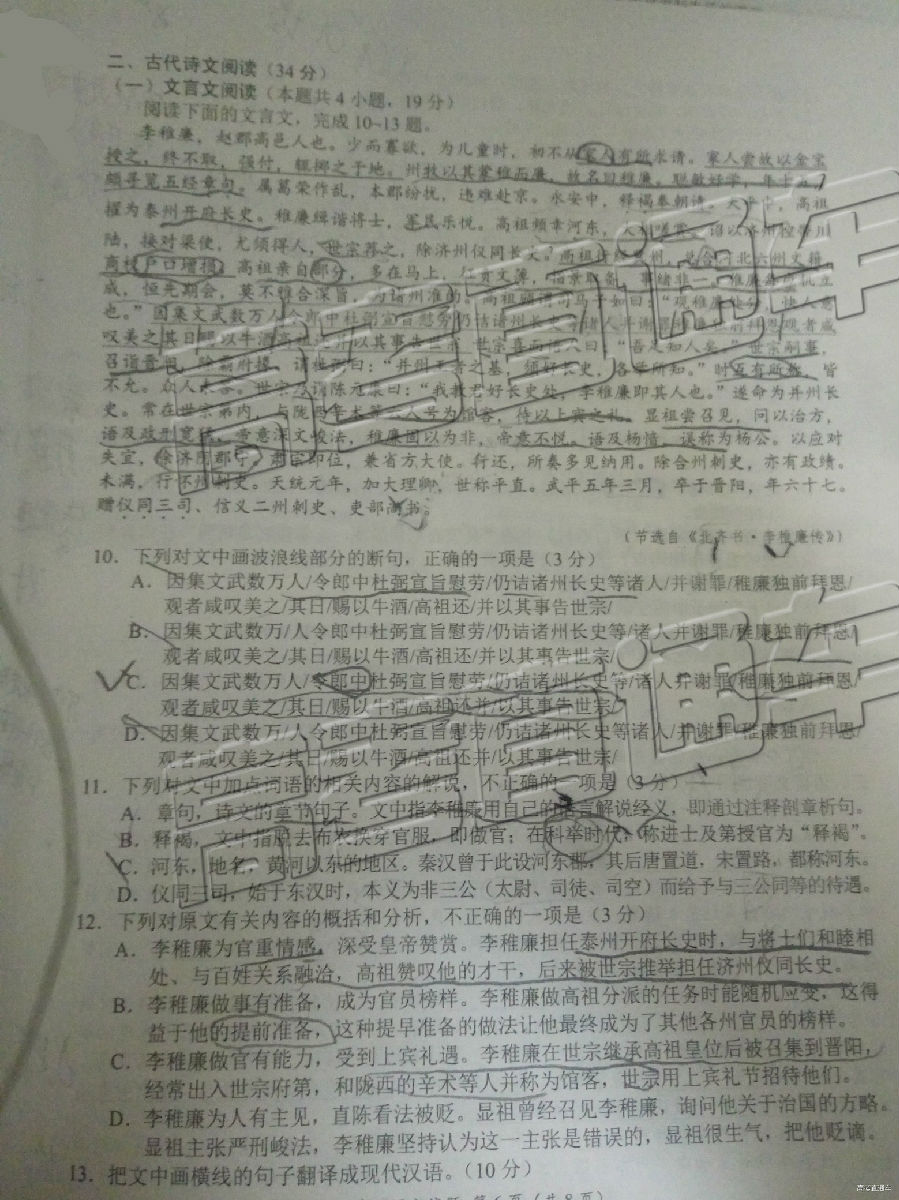 二、古代诗文阅读(34分)
(一)文言文阅读(本题共4小题,19分)
阅读下面的文言文,完成10~13题。
李稚廉,赵郡高邑人也。少而寡欲,为儿童时,初不从家人有所求请。家人尝故以金宝
授之,终不取,强付,辄掷之于地。州牧以其蒙稚而廉,故名曰稚廉。聪敏好学,年十五,
颇寻览五经章句。属葛荣作乱,本郡纷扰,违难赴京。永安中,释褐奉朝请。天平中,高祖
擢为泰州开府长史。稚廉缉谐将士,军民乐悦。高祖频幸河东,大相嗟赏。
陆,接对梁使,尤须得人,世宗荐之,除济州仪同长史。
商榷户口增损。高祖亲自部分,多在马上,
成,恒先期会,莫不雅合深旨,为诸州准的。高祖顾谓司马子如曰:“观稚廉处分,快人意
也。”因集文武数万人令郎中杜弼宣旨慰劳仍诘诸州长史等诸人并谢罪稚廉独前拜恩观者咸
叹美之其日赐以牛酒高祖还并以其事告世宗 世宗喜而语人曰:“吾足知人矣。”世宗嗣事,
召诣晋阳,除霸府掾。谓杜弼曰:“并州王者之基,须好长史,各举所知。”时互有所称,皆
不允。众人未答。世宗乃谓陈元康曰:“我教君好长史处,李稚廉即其人也。”遂命为并州长
史。常在世宗第内,与陇西辛术等六人号为馆客,待以上宾之礼。显祖尝召见,问以治方,
语及政刑宽猛,帝意深文峻法,稚廉固以为非,帝意不悦。语及杨愔,误称为杨公。以应对
失宜,除济阴郡守。肃宗即位,兼省方大使。行还,所奏多见纳用。除合州刺史,亦有政绩。
未满,行怀州刺史。天统元年,加大理卿,世称平直。武平五年三月,卒于晋阳,年六十七。
赠仪同三司、信义二州刺史、吏部尚书。
(节选自《北齐书·李稚廉传》)
10. 下列对文中画波浪线部分的断句,正确的一项是(3分)
A. 因集文武数万人/令郎中杜弼宣旨慰劳/仍诘诸州长史等诸人/并谢罪/稚廉独前拜恩/
观者咸叹美之/其日/赐以牛酒/高祖还/并以其事告世宗/
B. 因集文武数万/人令郎中杜弼宣旨慰劳/仍诘诸州长史等/诸人并谢罪/稚廉独前拜恩/
观者咸叹美之/其日/赐以牛酒/高祖还/并以其事告世宗/
C. 因集文武数万人/令郎中杜弼宣旨慰劳/仍诘诸州长史等/诸人并谢罪/稚廉独前拜恩/
观者咸叹美之/其日/赐以牛酒/高祖还/并以其事告世宗/
D. 因集文武数万/人令郎中杜弼宣旨慰劳/仍诘诸州长史等诸人/并谢罪/稚廉独前拜恩/
观者咸叹美之/其日/赐以牛酒/高祖还/并以其事告世宗/
11. 下列对文中加点词语的相关内容的解说,不正确的一项是(3分)
A. 章句,诗文的章节句子。文中指李稚廉用自己的语言解说经义,即通过注释剖章析句。
B. 释褐,文中指脱去布衣换穿官服,即做官;在科举时代,称进士及第授官为“释褐”。
C. 河东,地名,黄河以东的地区。秦汉曾于此设河东郡,其后唐置道,宋置路,都称河东。
D. 仪同三司,始于东汉时,本义为非三公(太尉、司徒、司空)而给予与三公同等的待遇。
12. 下列对原文有关内容的概括和分析,不正确的一项是(3分)
A. 李稚廉为官重情感,深受皇帝赞赏。李稚廉担任泰州开府长史时,与将士们和睦相
处、与百姓关系融洽,高祖赞叹他的才干,后来被世宗推举担任济州仪同长史。
B. 李稚廉做事有准备,成为官员榜样。李稚廉做高祖分派的任务时能随机应变,这得
益于他的提前准备,这种提早准备的做法让他最终成为了其他各州官员的榜样。
C. 李稚廉做官有能力,受到上宾礼遇。李稚廉在世宗继承高祖皇位后被召集到晋阳,
经常出入世宗府第,和陇西的辛术等人并称为馆客,世宗用上宾礼节招待他们。
D. 李稚廉为人有主见,直陈看法被贬。显祖曾经召见李稚廉,询问他关于治国的方略。
显祖主张严刑峻法,李稚廉坚持认为这一主张是错误的,显祖很生气,把他贬谪。
13. 把文中画横线的句子翻译成现代汉语。(10分)
第6页(共8页)
高考直通车
高考直通车